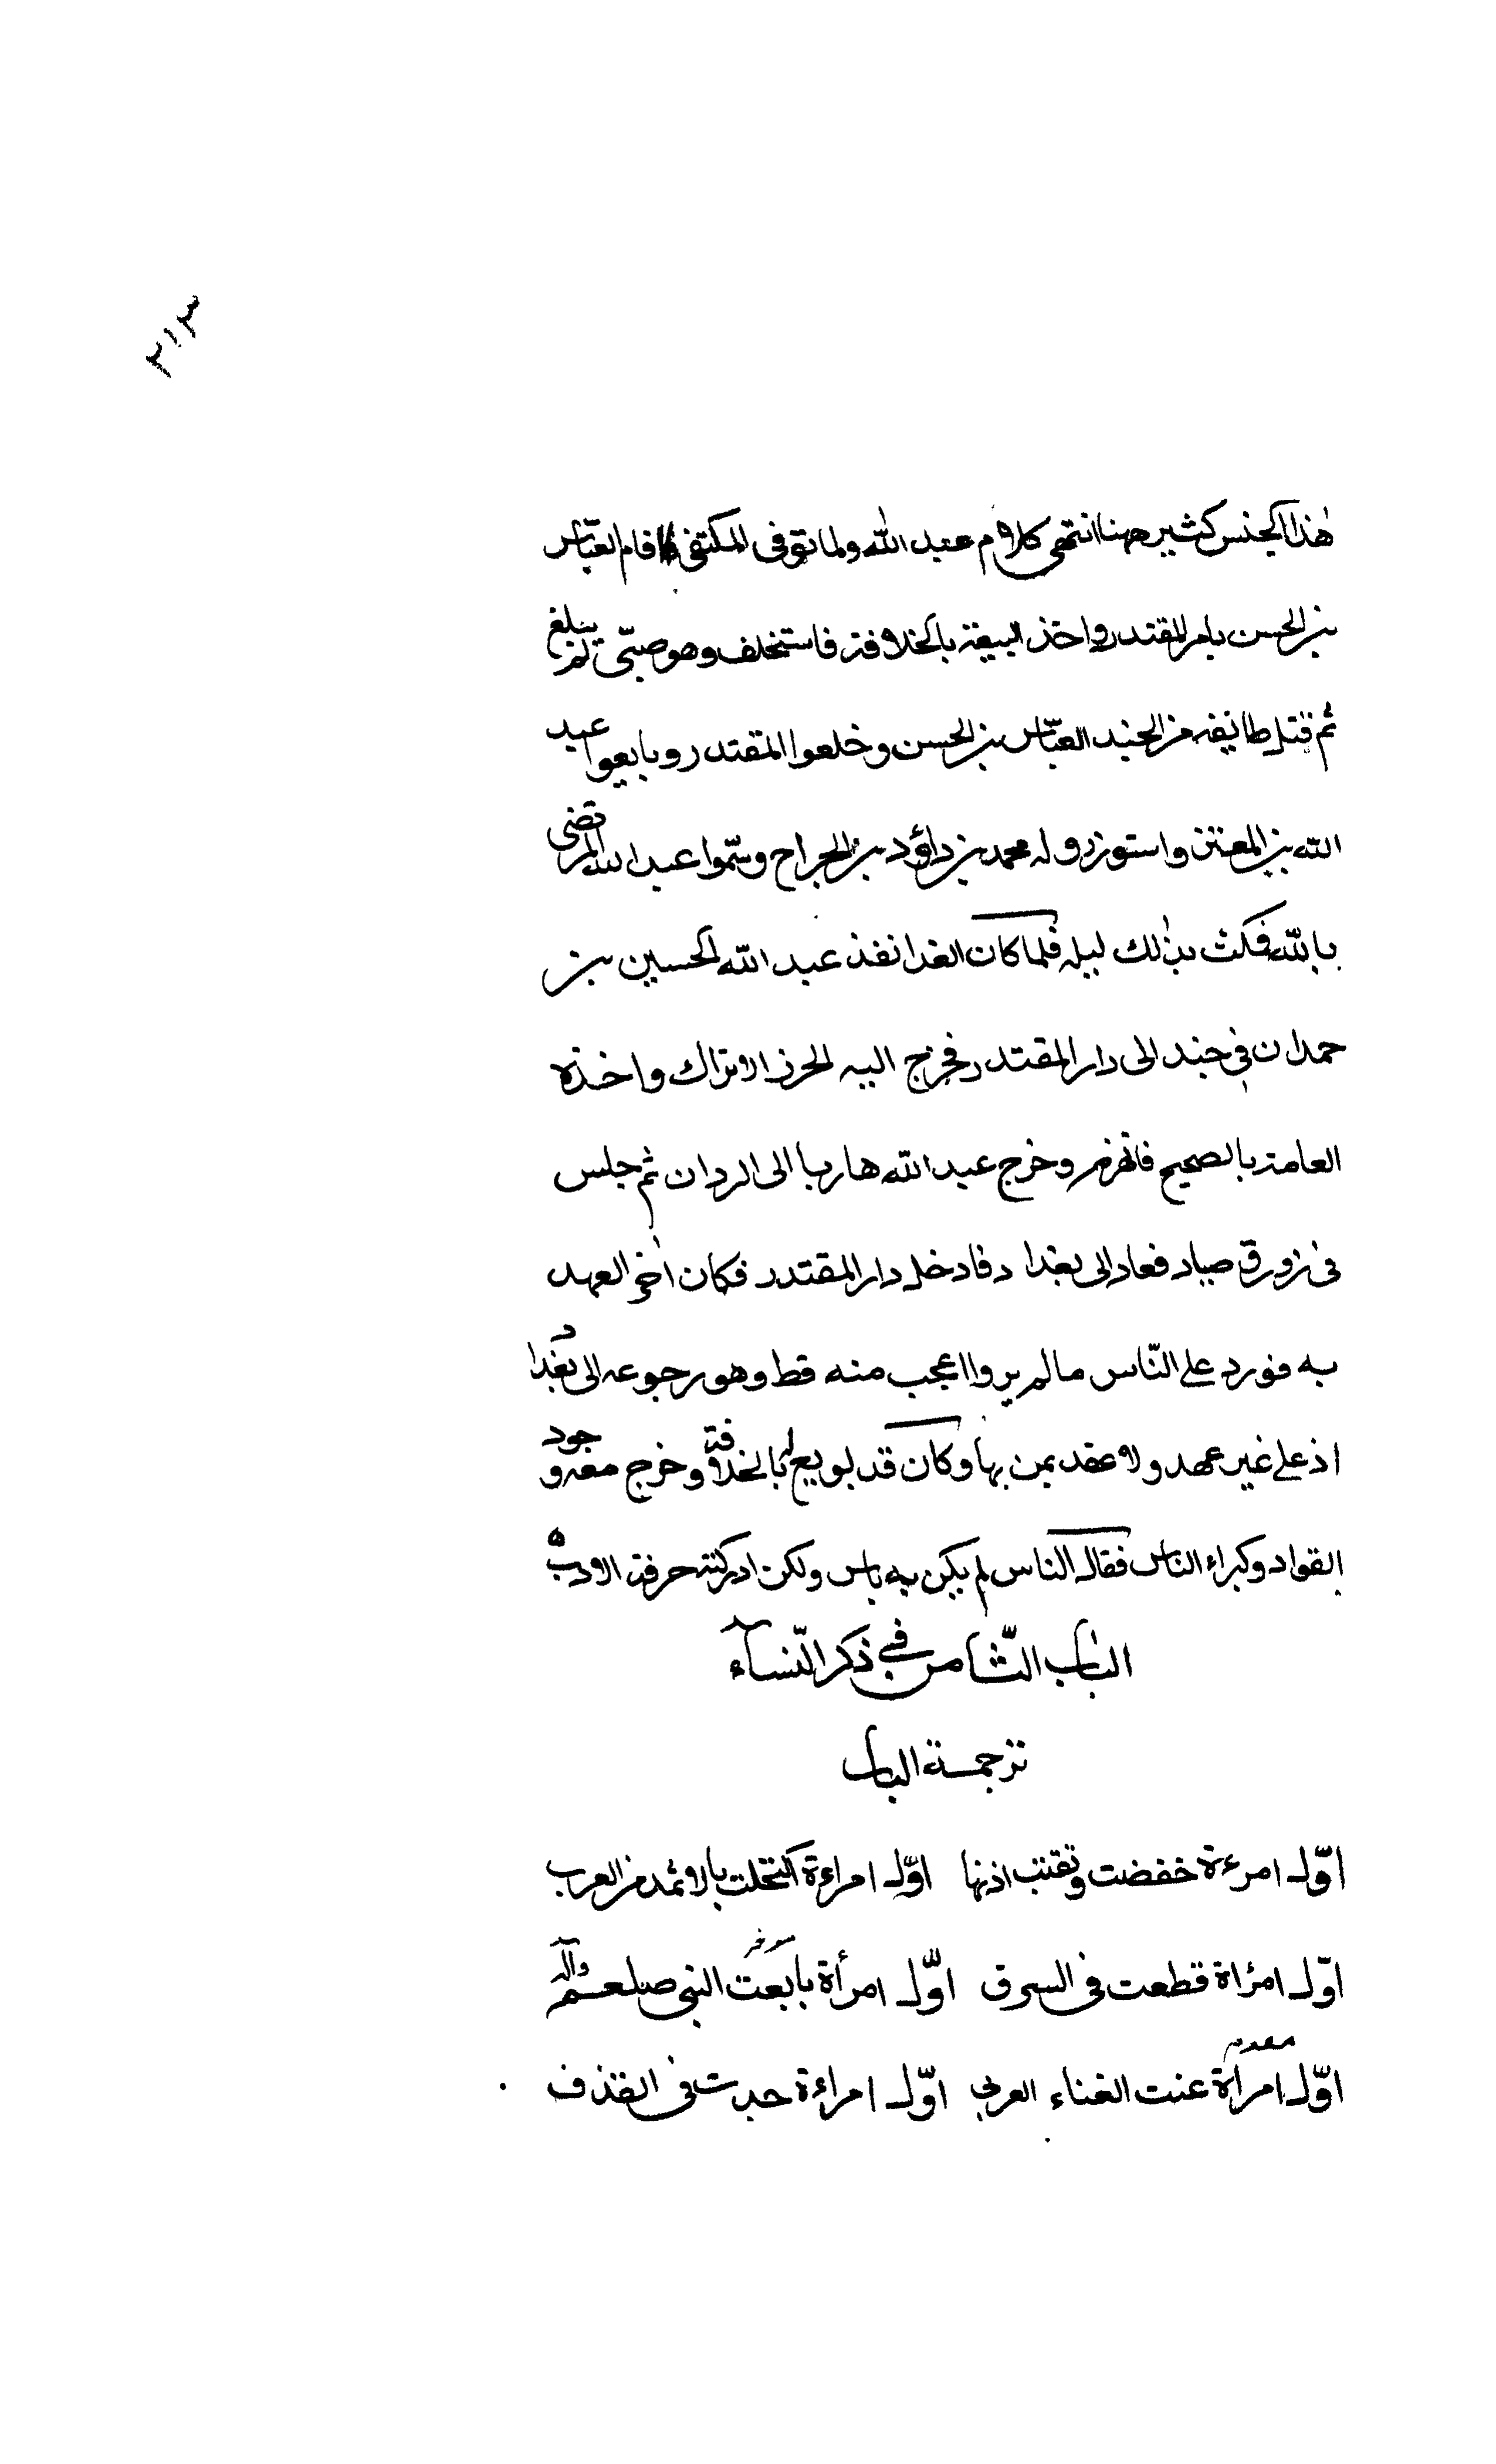 ٢١٣
هذا الجنس كثير ههنا انتهى كلام عبد الله ولما توفى المكتفى قام العبّاس
بن الحسن بامر المقتدر واخذ البيعة بالخلافة فاستخلف وهو صبىّ لم يبلغ
ثم قتل طايفه من الجند العبّاس بن الحسن وخلعوا المقتدر وبايعوا عبد
الله بن المعتز واستوزروله محمد بن داؤد بن الجراح وسمّوا عبد الله المرتضى
بالله فمكث بذلك ليله فلما كان الغدا نفذ عبد الله الحسين بن
حمدان فى جند الى دار المقتدر فخرج اليه الحرز الاتراك واخذه
العامة بالصحيح فانهزم وخرج عبد الله هاربا الى الردان ثم جلس
فى زورق صياد فعاد الى بغداد فادخل دار المقتدر فكان اخر العهد
به فورد على النّاس ما لم يروا اعجب منه قط وهو رجوعه الى بغداد
اذ على غير عهد ولا عقد بمن بها وكان قد بويع له بالخلافة وخرج معه وجود
القواد وكبراء الناس فقال الناس لم يكن به باس ولكن ادركته حرفة الادب ه
الباب الثّامن فى ذكر النّساء
ترجمة الباب
اوّل امرءة خفضت وثقبت اذنها اوّل امراءة اكتحلت بالاثمد من العرب
اوّل امرُاة قطعت فى السرق اوّل امرأة بايعت النبى صلعم وآله
اوّل امرأة غنت الغناء العربى اوّل امراءة حدت فى القذف